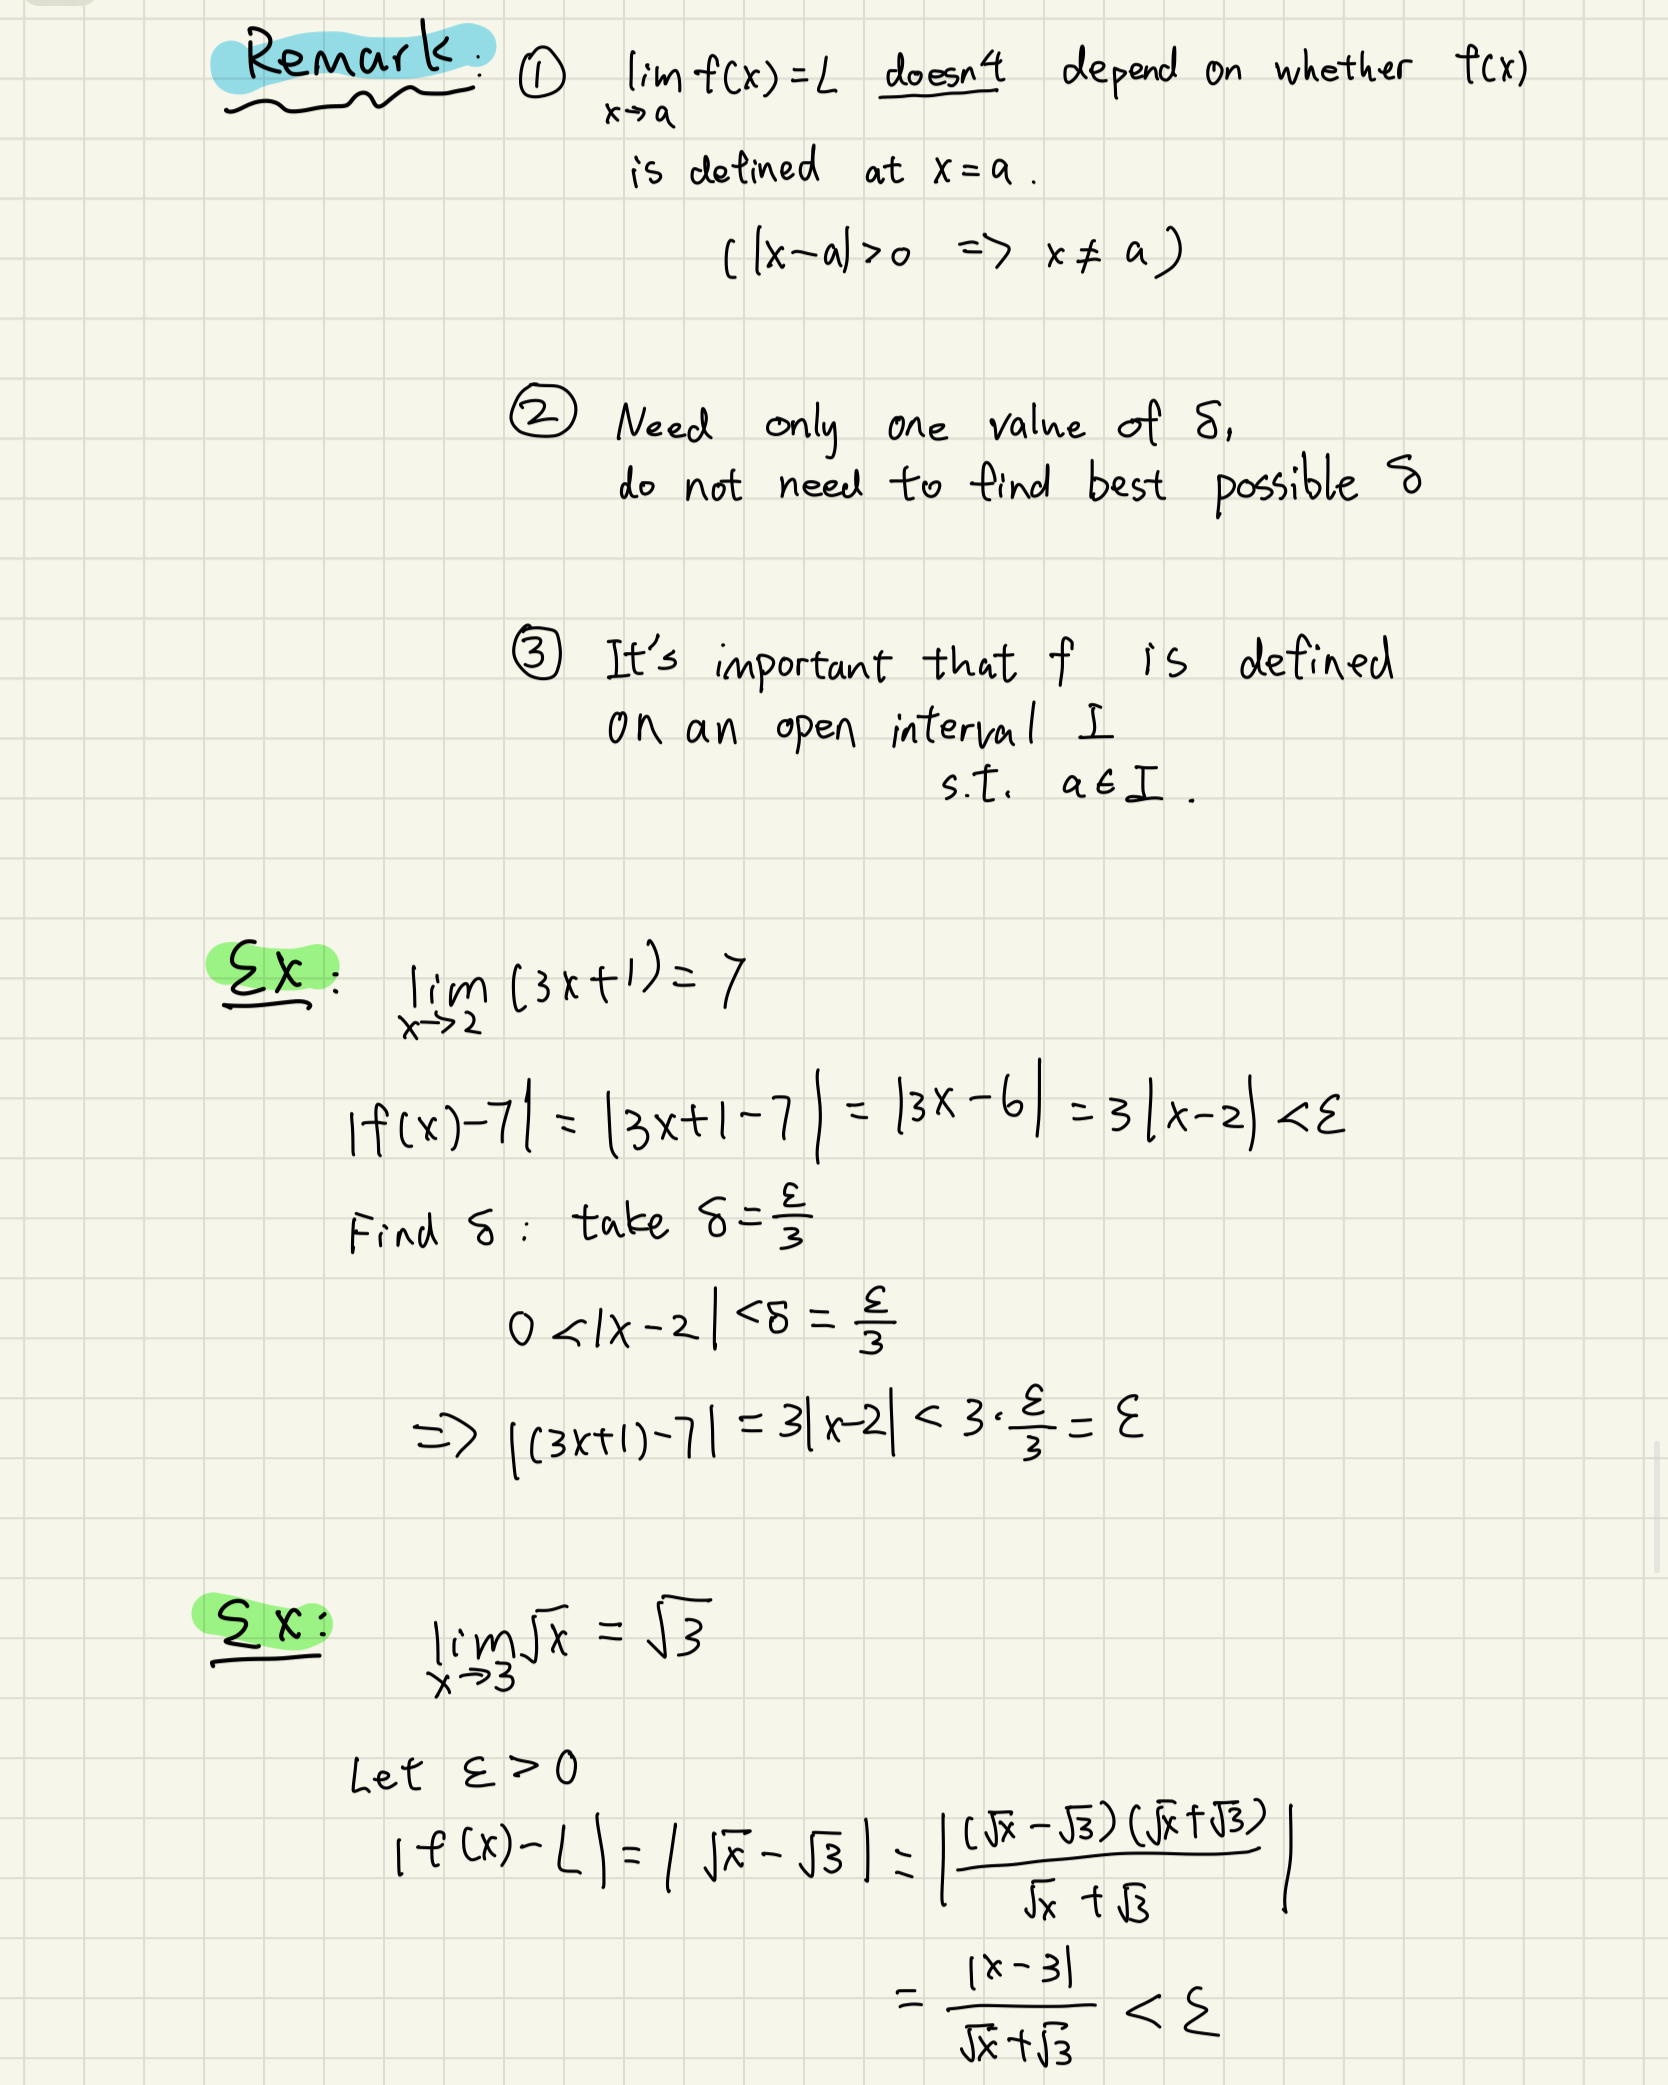 Remark: ① lim f(x) = L doesn't depend on whether f(x)
x→a
is defined at x = a .
( |x-a| > 0 => x ≠ a )
② Need only one value of δ,
do not need to find best possible δ
③ It's important that f is defined
on an open interval I
s.t. a ∈ I .
Ex: lim (3x+1) = 7
x→2
|f(x)-7| = |3x+1-7| = |3x-6| = 3|x-2| < ε
Find δ : take δ = ε/3
0 < |x-2| < δ = ε/3
=> |(3x+1)-7| = 3|x-2| < 3 · ε/3 = ε
Ex: lim √x = √3
x→3
Let ε > 0
|f(x)-L| = |√x - √3| = |(√x - √3)(√x + √3) / √x + √3|
= |x-3| / √x + √3 < ε